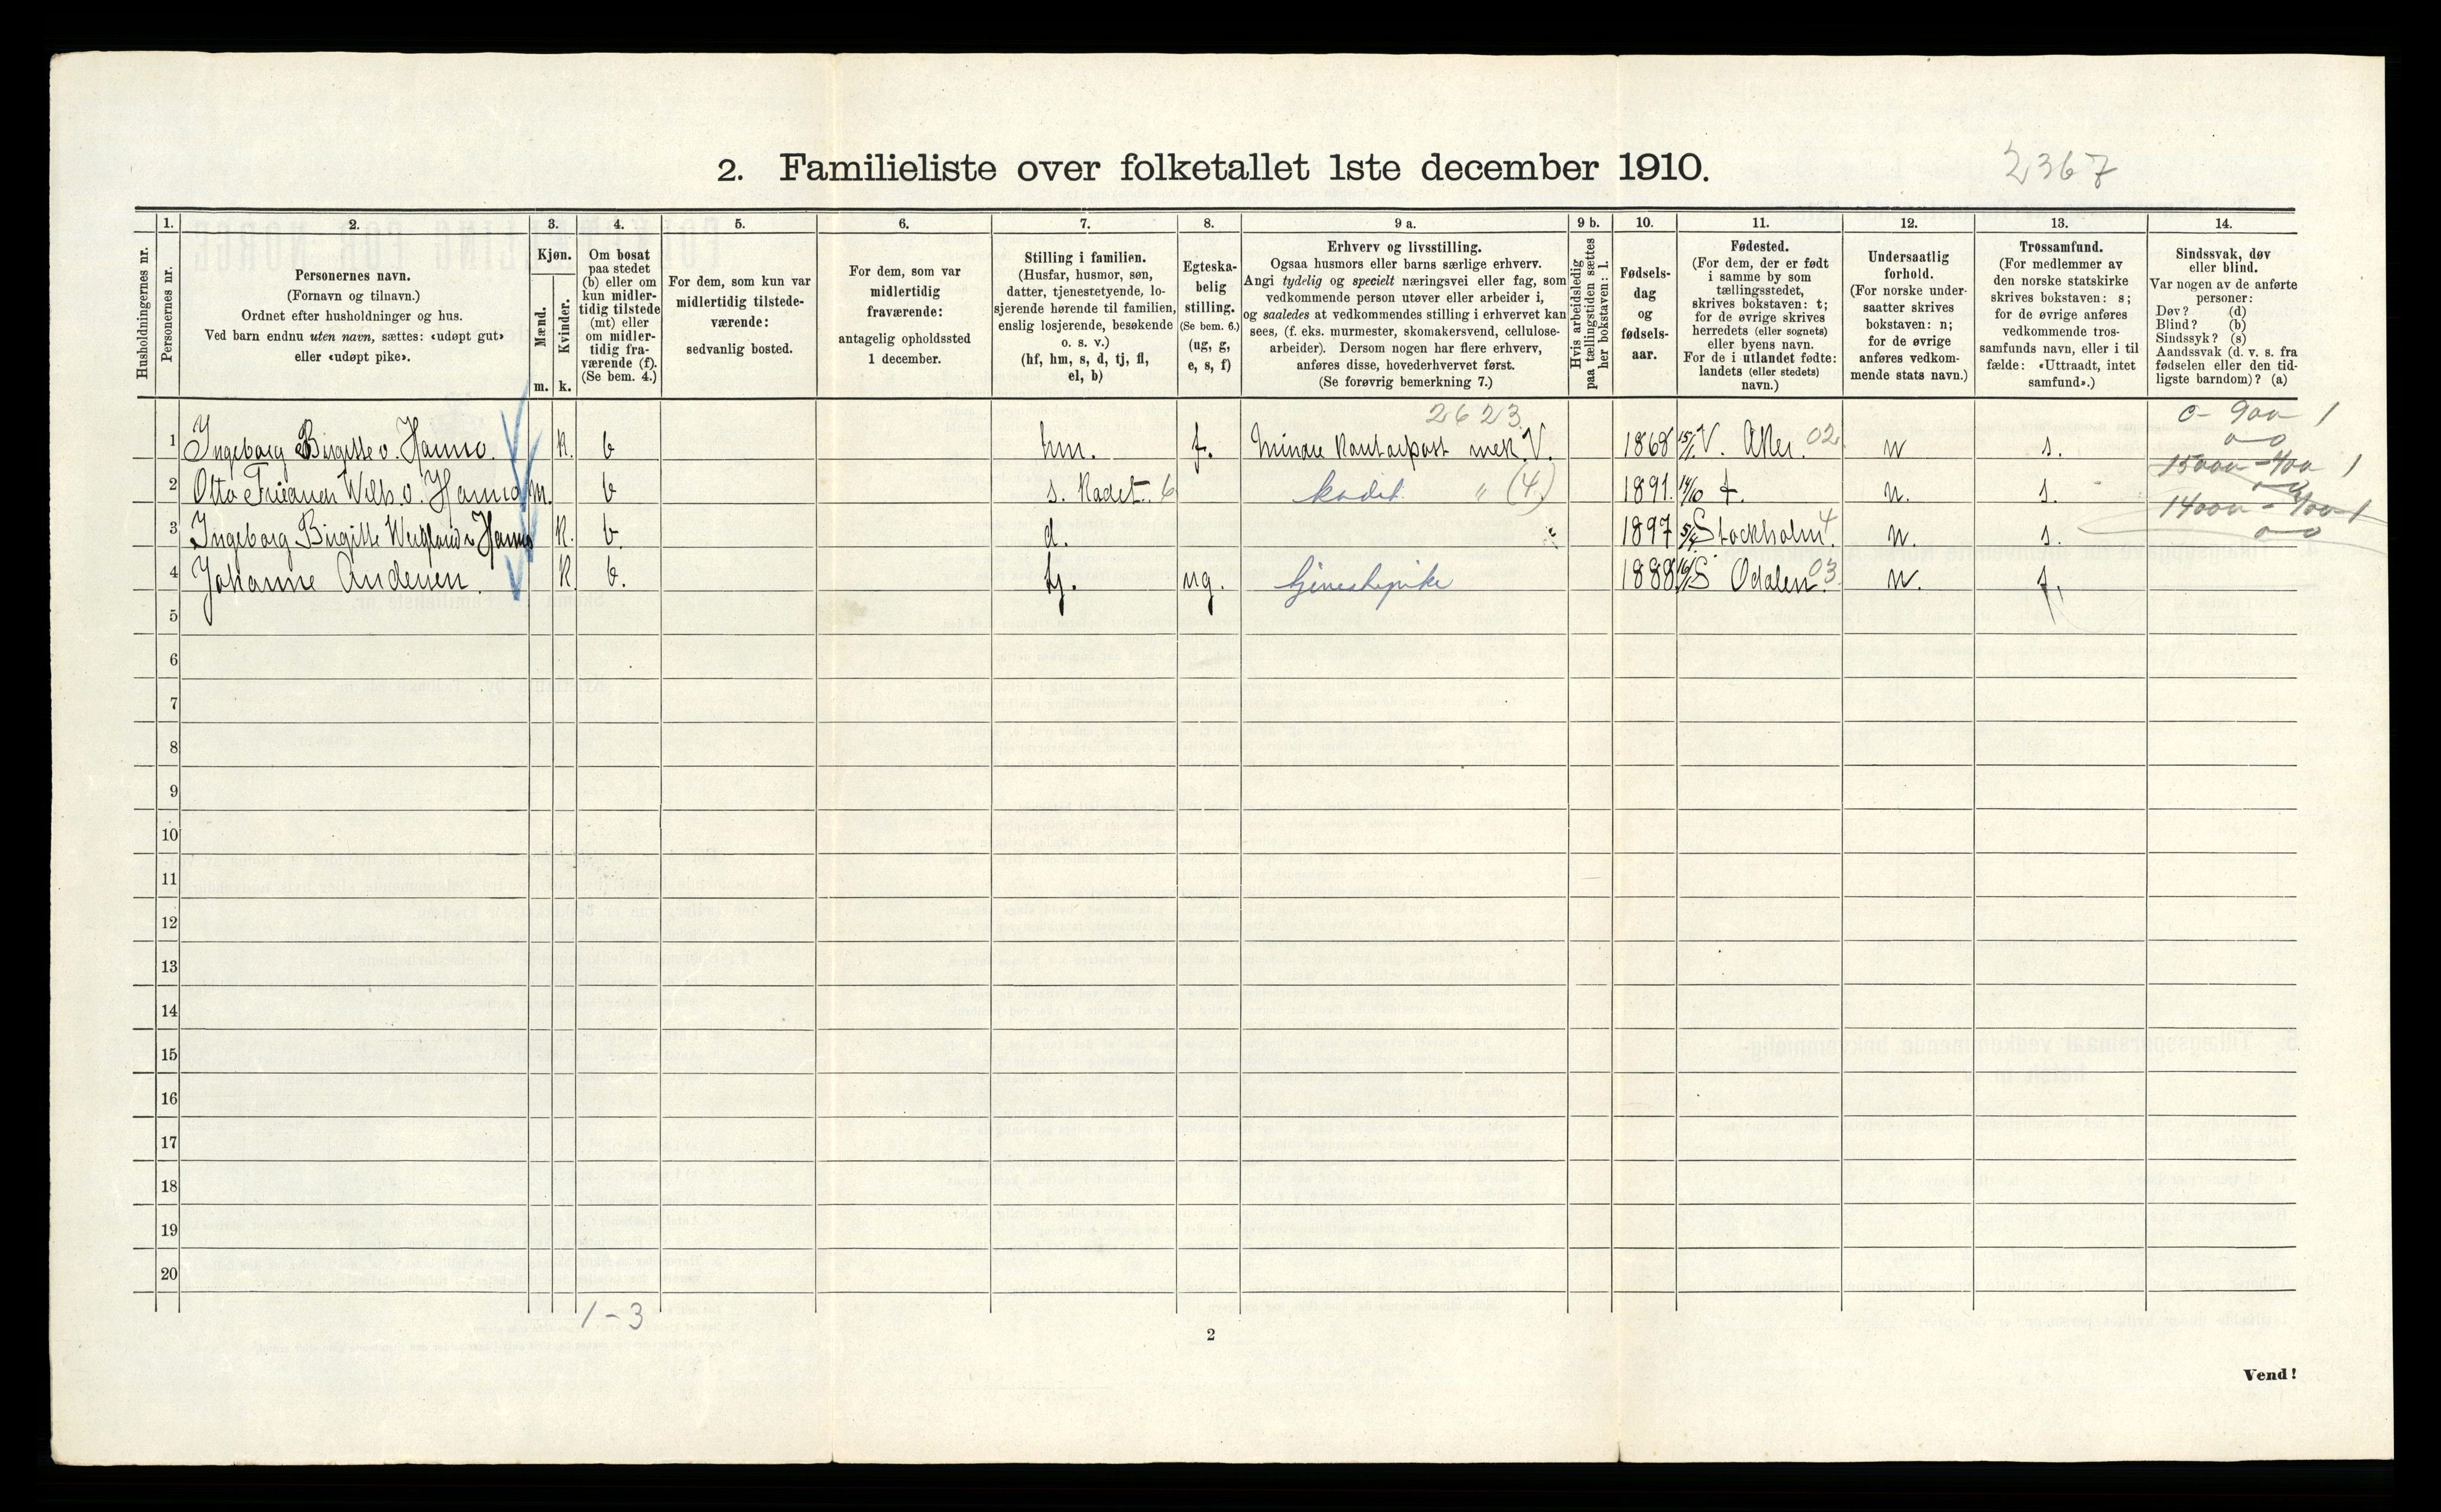 2. Familieliste over folketallet 1ste december 1910.
2367
Husholdningernes nr.
1.
Personernes nr.
2.
Personernes navn.
(Fornavn og tilnavn.)
Ordnet efter husholdninger og hus.
Ved barn endnu uten navn, sættes: «udøpt gut»
eller «udøpt pike».
3.
Kjøn.
Mænd.
Kvinder.
m. k.
4.
Om bosat
paa stedet
(b) eller om
kun midler-
tidig tilstede
(mt) eller
om midler-
tidig fra-
værende (f).
(Se bem. 4.)
5.
For dem, som kun var
midlertidig tilstede-
værende:
sedvanlig bosted.
6.
For dem, som var
midlertidig
fraværende:
antagelig opholdssted
1 december.
7.
Stilling i familien.
(Husfar, husmor, søn,
datter, tjenestetyende, lo-
sjerende hørende til familien,
enslig losjerende, besøkende
o. s. v.)
(hf, hm, s, d, tj, fl,
el, b)
8.
Egteska-
belig
stilling.
(Se bem. 6.)
(ug, g,
e, s, f)
9 a.
Erhverv og livsstilling.
Ogsaa husmors eller barns særlige erhverv.
Angi tydelig og specielt næringsvei eller fag, som
vedkommende person utøver eller arbeider i,
og saaledes at vedkommendes stilling i erhvervet kan
sees, (f. eks. murmester, skomakersvend, cellulose-
arbeider). Dersom nogen har flere erhverv,
anføres disse, hovederhvervet først.
(Se forøvrig bemerkning 7.)
9 b.
Hvis arbeidsledig
paa tællingstiden sættes
her bokstaven: l.
10.
Fødsels-
dag
og
fødsels-
aar.
11.
Fødested.
(For dem, der er født
i samme by som
tællingsstedet,
skrives bokstaven: t;
for de øvrige skrives
herredets (eller sognets)
eller byens navn.
For de i utlandet fødte:
landets (eller stedets)
navn.)
12.
Undersaatlig
forhold.
(For norske under-
saatter skrives
bokstaven: n;
for de øvrige
anføres vedkom-
mende stats navn.)
13.
Trossamfund.
(For medlemmer av
den norske statskirke
skrives bokstaven: s;
for de øvrige anføres
vedkommende tros-
samfunds navn, eller i til
fælde: «Uttraadt, intet
samfund».)
14.
Sindssvak, døv
eller blind.
Var nogen av de anførte
personer:
Døv? (d)
Blind? (b)
Sindssyk? (s)
Aandssvak (d. v. s. fra
fødselen eller den tid-
ligste barndom)? (a)
2623
1 Ingeborg Birgitte v. Hanno. K. b hm. f. 1868 15/1 V. Aker. 02 n s.
2 Otto v. Hanno m. b s. Kadet. 6 kadet. " (4) 1891. 14/10 t. n. s.
3 Ingeborg Birgitte v Hanno K. b. d. 1897 5/4 Stockholm. 4 n. s.
4 Johanne Andersen. K b. tj. ug. tjenestepike 1888 16/ S Odalen. 03 n. f.
5
6
7
8
9
10
11
12
13
14
15
16
17
18
19
20
1-3
2
Vend!